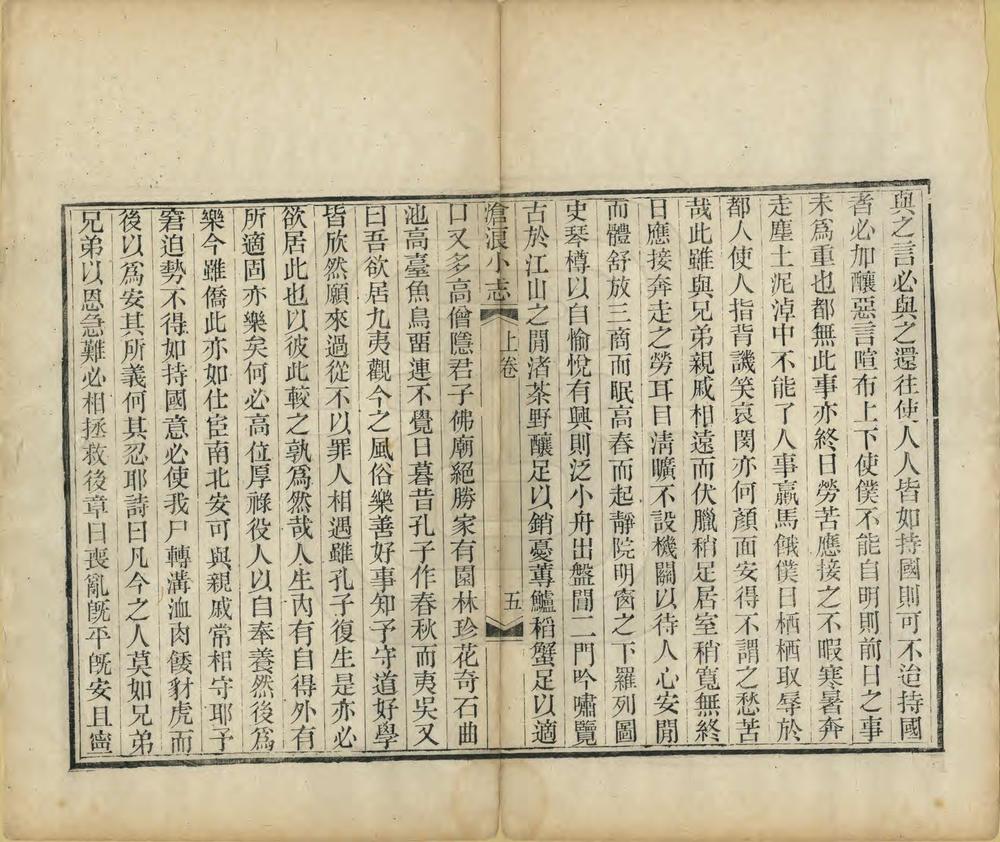 與之言必與之還往使人人皆如持國則可不迨持國
者必加釀惡言喧布上下使僕不能自明則前日之事
未爲重也都無此事亦終日勞苦應接之不暇寒暑奔
走塵土泥淖中不能了人事羸馬餓僕日栖栖取辱於
都人使人指背譏笑哀閔亦何顏面安得不謂之愁苦
哉此雖與兄弟親戚相遠而伏臘稍足居室稍寬無終
日應接奔走之勞耳目淸曠不設機關以待人心安閒
而體舒放三商而眠高舂而起靜院明窗之下羅列圖
史琴樽以自愉悅有興則泛小舟出盤閶二門吟嘯覽
古於江山之閒渚茶野釀足以銷憂蓴鱸稻蟹足以適
滄浪小志 上卷 五
口又多高僧隱君子佛廟絕勝家有園林珍花奇石曲
池高臺魚鳥畱連不覺日暮昔孔子作春秋而夷吳又
曰吾欲居九夷觀今之風俗樂善好事知予守道好學
皆欣然願來過從不以罪人相遇雖孔子復生是亦必
欲居此也以彼此較之孰爲然哉人生內有自得外有
所適固亦樂矣何必高位厚祿役人以自奉養然後爲
樂今雖僑此亦如仕宦南北安可與親戚常相守耶予
窘迫勢不得如持國意必使我尸轉溝洫肉餧豺虎而
後以爲安其所義何其忍耶詩曰凡今之人莫如兄弟
兄弟以恩急難必相拯救後章曰喪亂旣平旣安且寧